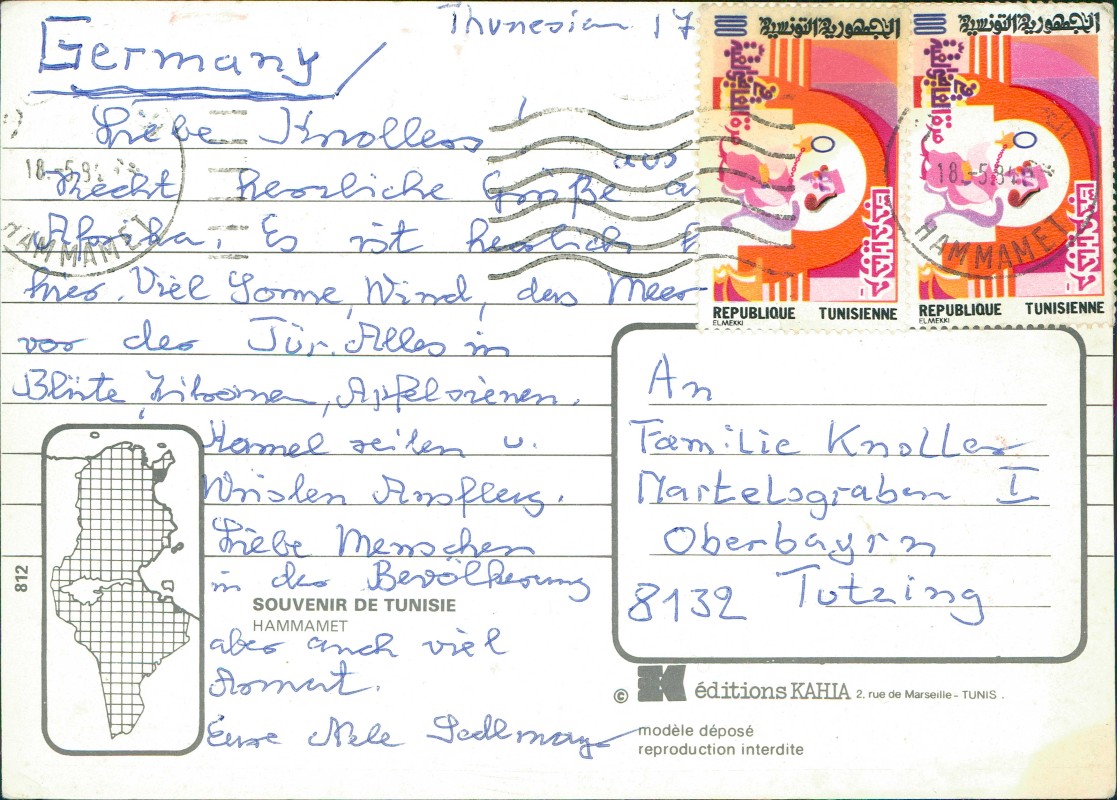 Germany
Thunesian 17
Liebe Knollers!
Recht herzliche Grüße aus
Afrika. Es ist herrlich
hier. Viel Sonne, Wind, das Meer
vor der Tür. Alles in
Blüte, Zitronen, Apfelsienen.
Kamel reiten u.
Wüsten Ausflug.
Liebe Menschen
in der Bevölkerung
aber auch viel
Armut.
Eure Nele Sedlmayr
An
Familie Knoller
Martelsgraben I
Oberbayrn
8132 Tutzing
الجمهورية التونسية
REPUBLIQUE TUNISIENNE
ELMEKKI
الجمهورية التونسية
REPUBLIQUE TUNISIENNE
ELMEKKI
18.-5.84
HAMMAMET
18.-5.84
HAMMAMET
812
SOUVENIR DE TUNISIE
HAMMAMET
© éditions KAHIA 2, rue de Marseille - TUNIS.
modèle déposé
reproduction interdite